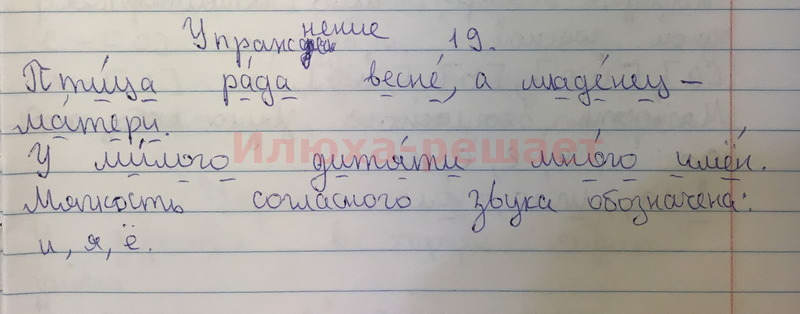 Упражнение 19.
Пти́ца ра́да весне́, а младе́нец –
ма́тери.
У ми́лого дитя́ти мно́го имён.
Илюха-решает
Мягкость согласного звука обозначена:
и, я, ё.